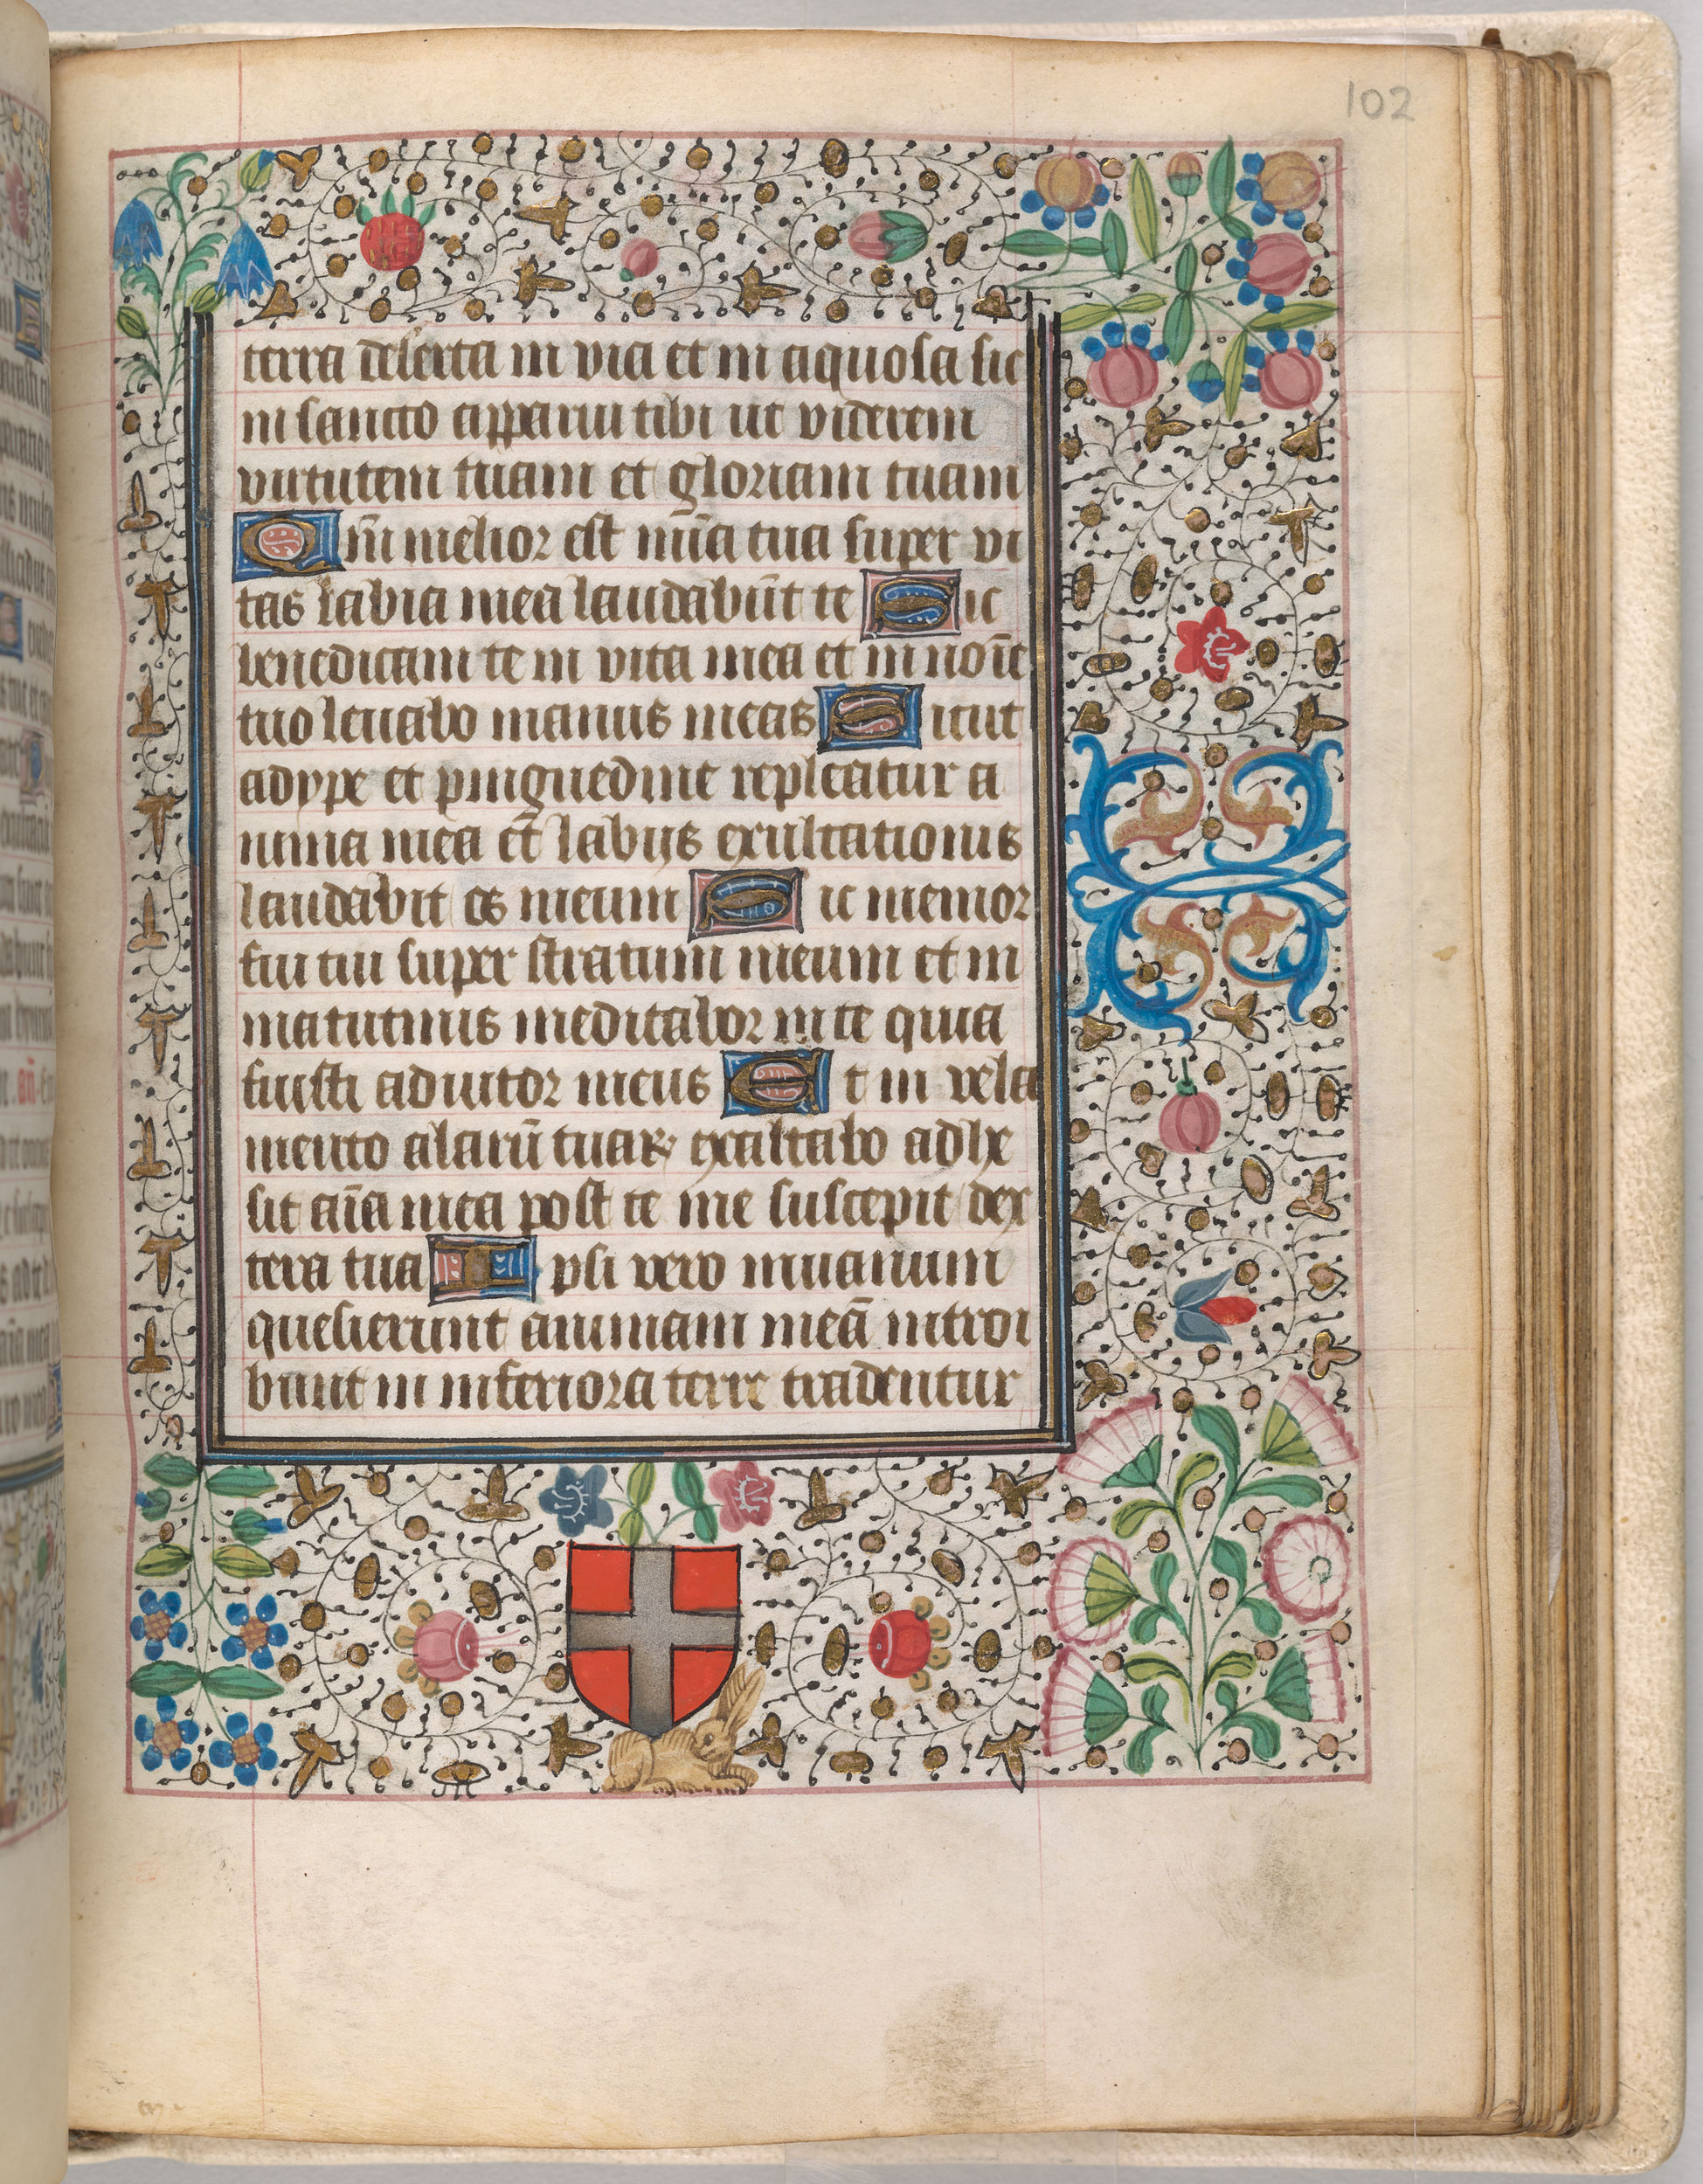 102
terra deserta in via et in aquosa sic
in sancto apparui tibi ut viderem
virtutem tuam et gloriam tuam
Qm̄ melior est mīa tua super vi
tas labia mea laudabūt te Sic
benedicam te in vita mea et in noīe
tuo levabo manus meas Sicut
adype et pinguedine repleatur a
nima mea et labijs exultationis
laudabit os meum Sic memor
fui tui super stratum meum et in
matutinis meditabor in te quia
fuisti adiutor meus Et in vela
mento alarū tuaꝝ exaltabo adhe
sit aīa mea post te me suscepit dex
tera tua Ipsi vero in vanum
quesierunt animam meā introi
bunt in inferiora terre tradentur